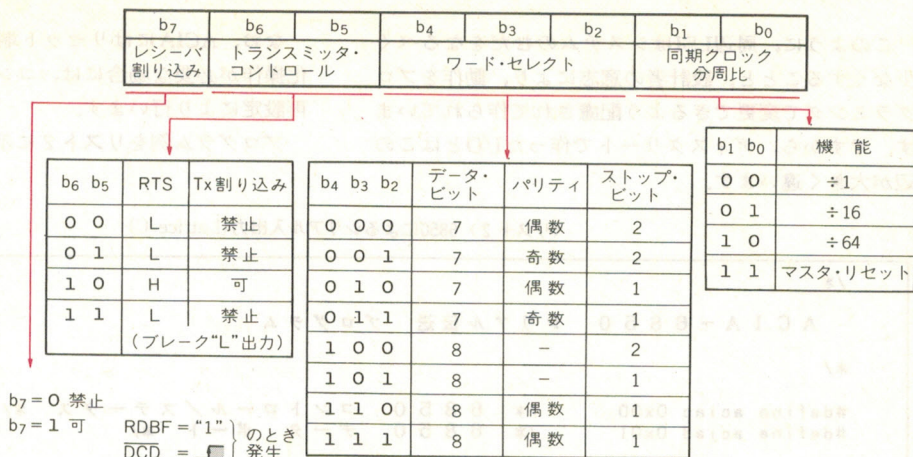 b7 b6 b5 b4 b3 b2 b1 b0
レシーバ割り込み トランスミッタ・コントロール ワード・セレクト 同期クロック分周比
b6 b5 RTS Tx割り込み
0 0 L 禁止
0 1 L 禁止
1 0 H 可
1 1 L 禁止
(ブレーク“L”出力)
b4 b3 b2 データ・ビット パリティ ストップ・ビット
0 0 0 7 偶数 2
0 0 1 7 奇数 2
0 1 0 7 偶数 1
0 1 1 7 奇数 1
1 0 0 8 － 2
1 0 1 8 － 1
1 1 0 8 偶数 1
1 1 1 8 偶数 1
b1 b0 機能
0 0 ÷1
0 1 ÷16
1 0 ÷64
1 1 マスタ・リセット
b7=0 禁止
b7=1 可
RDBF=“1”
DCD = のとき発生